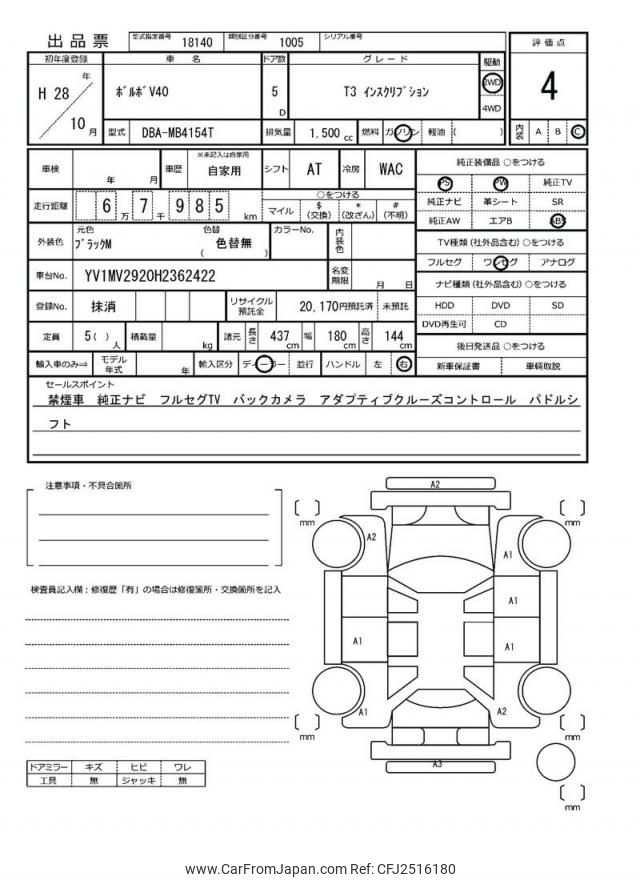 出品票 型式指定番号 18140 類別区分番号 1005 シリアル番号
初年度登録 車名 ドア数 グレード 駆動 評価点
H 28 年 10 月 ﾎﾞﾙﾎﾞV40 5 D T3 ｲﾝｽｸﾘﾌﾟｼｮﾝ 2WD 4WD 4
型式 DBA-MB4154T 排気量 1,500 cc 燃料 ガソリン 軽油 ( ) 内装 A B C
車検 年 月 車歴 ※未記入は自家用 自家用 シフト AT 冷房 WAC
走行距離 6 万 7 千 9 8 5 km ○をつける マイル $ (交換) * (改ざん) # (不明)
外装色 元色 ﾌﾞﾗｯｸM 色替 ( 色替無 ) カラーNo. 内装色
車台No. YV1MV2920H2362422 名変期限 月 日
登録No. 抹消 リサイクル預託金 20,170円預託済 未預託
定員 5( ) 人 積載量 kg 諸元 長さ 437 cm 幅 180 cm 高さ 144 cm
輸入車のみ⇒ モデル年式 年 輸入区分 ディーラー 並行 ハンドル 左 右
純正装備品 ○をつける
PS PW 純正TV
純正ナビ 革シート SR
純正AW エアB ABS
TV種類 (社外品含む) ○をつける
フルセグ ワンセグ アナログ
ナビ種類 (社外品含む) ○をつける
HDD DVD SD
DVD再生可 CD
後日発送品 ○をつける
新車保証書 車輌取説
セールスポイント
禁煙車 純正ナビ フルセグTV バックカメラ アダプティブクルーズコントロール パドルシ
フト
注意事項・不具合箇所
検査員記入欄：修復歴「有」の場合は修復箇所・交換箇所を記入
ドアミラー キズ ヒビ ワレ
工具 無 ジャッキ 無
A2
mm mm
A2 A1
A1
A1 A1
A1 A2
mm mm
A3
mm
www.CarFromJapan.com Ref: CFJ2516180